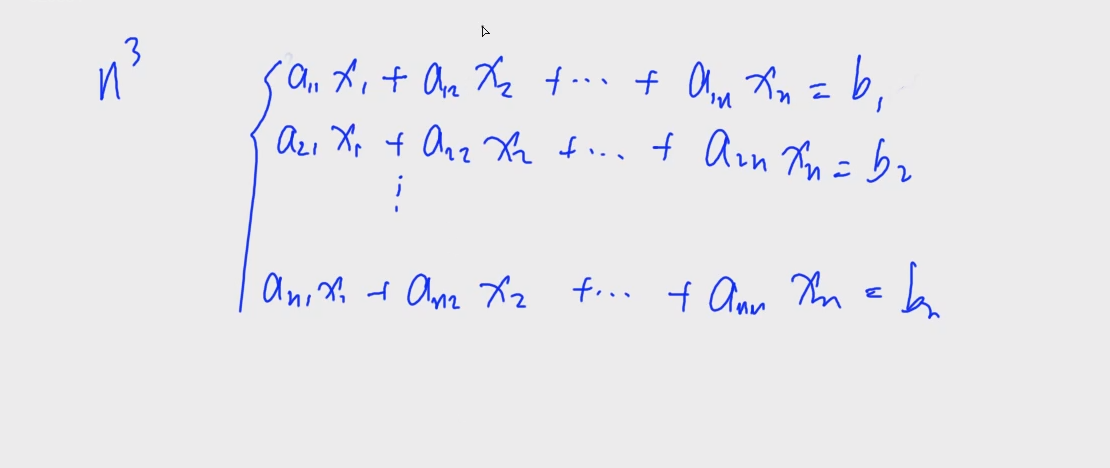 n³
a₁₁ x₁ + a₁₂ x₂ + ... + a₁ₙ xₙ = b₁
a₂₁ x₁ + a₂₂ x₂ + ... + a₂ₙ xₙ = b₂
⋮
aₙ₁ x₁ + aₙ₂ x₂ + ... + aₙₙ xₙ = bₙ